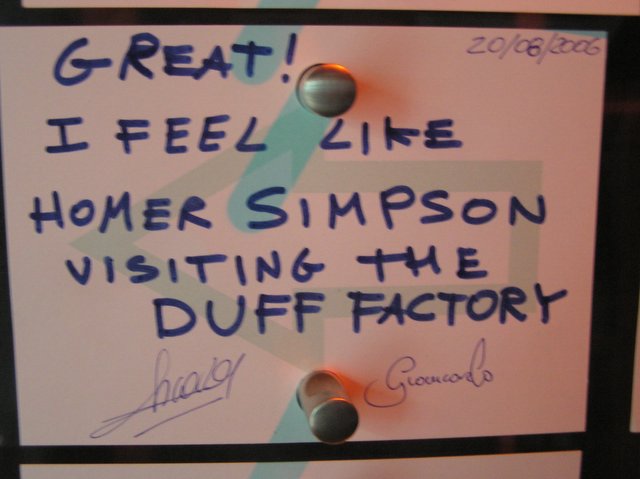 20/08/2006
GREAT!
I FEEL LIKE
HOMER SIMPSON
VISITING THE
DUFF FACTORY
Giancarlo